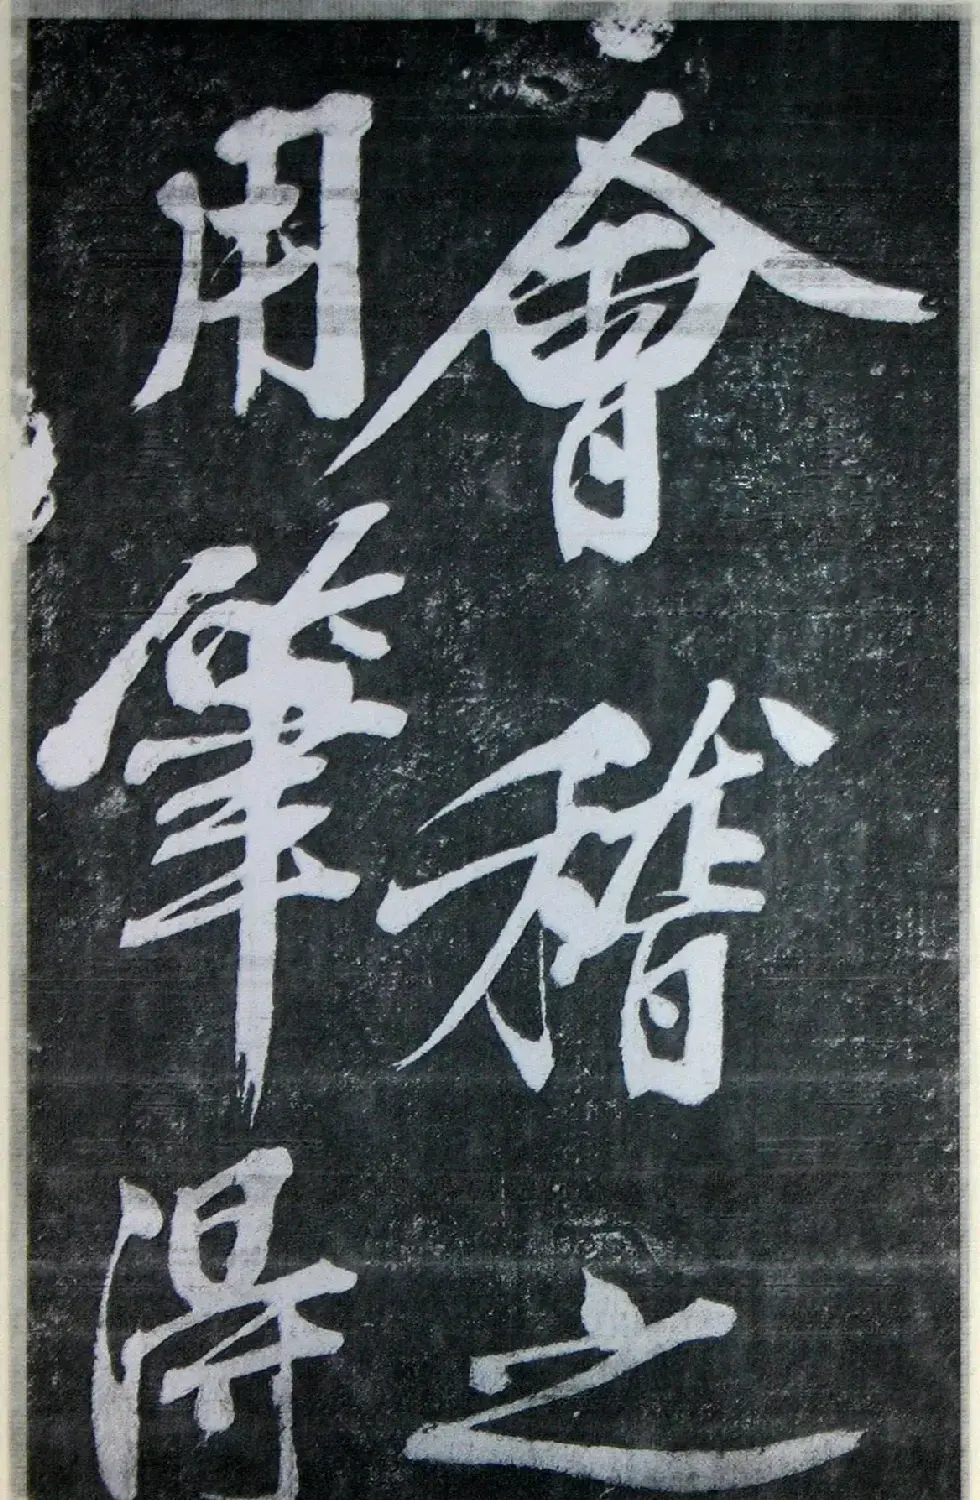 會稽之
用筆得